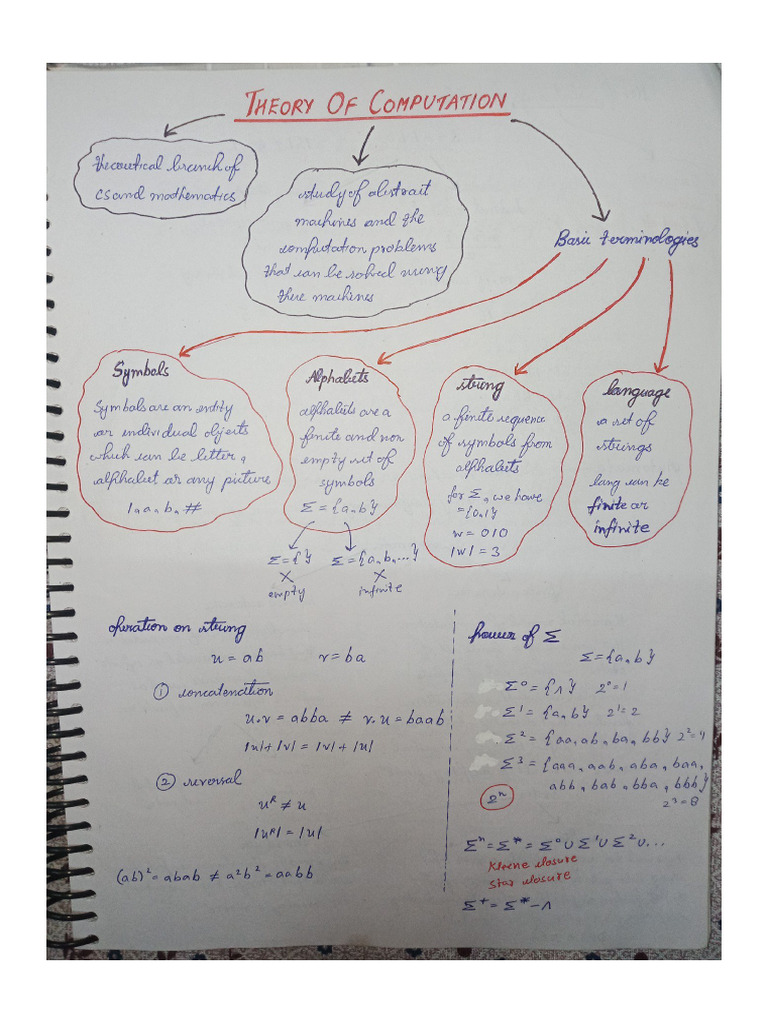 THEORY OF COMPUTATION
theoretical branch of
CS and mathematics
study of abstract
machines and the
computation problems
that can be solved using
these machines
Basic terminologies
Symbols
Symbols are an entity
or individual objects
which can be letter,
alphabet or any picture
1, a, b, #
Alphabets
alphabets are a
finite and non
empty set of
symbols
Σ = {a, b}
Σ = {}
X
empty
Σ = {a, b, ...}
X
infinite
string
a finite sequence
of symbols from
alphabets
for Σ, we have
= {0,1}
w = 010
|w| = 3
language
a set of
strings
lang can be
finite or
infinite
operation on string
u = ab v = ba
① concatenation
u.v = abba ≠ v.u = baab
|u| + |v| = |v| + |u|
② reversal
uᴿ ≠ u
|uᴿ| = |u|
(ab)² = abab ≠ a²b² = aabb
power of Σ
Σ = {a, b}
Σ⁰ = {Λ} 2⁰ = 1
Σ¹ = {a, b} 2¹ = 2
Σ² = {aa, ab, ba, bb} 2² = 4
Σ³ = {aaa, aab, aba, baa,
abb, bab, bba, bbb}
2³ = 8
2ⁿ
Σⁿ = Σ* = Σ⁰ ∪ Σ¹ ∪ Σ² ∪ ...
Kleene closure
Star closure
Σ⁺ = Σ* - Λ